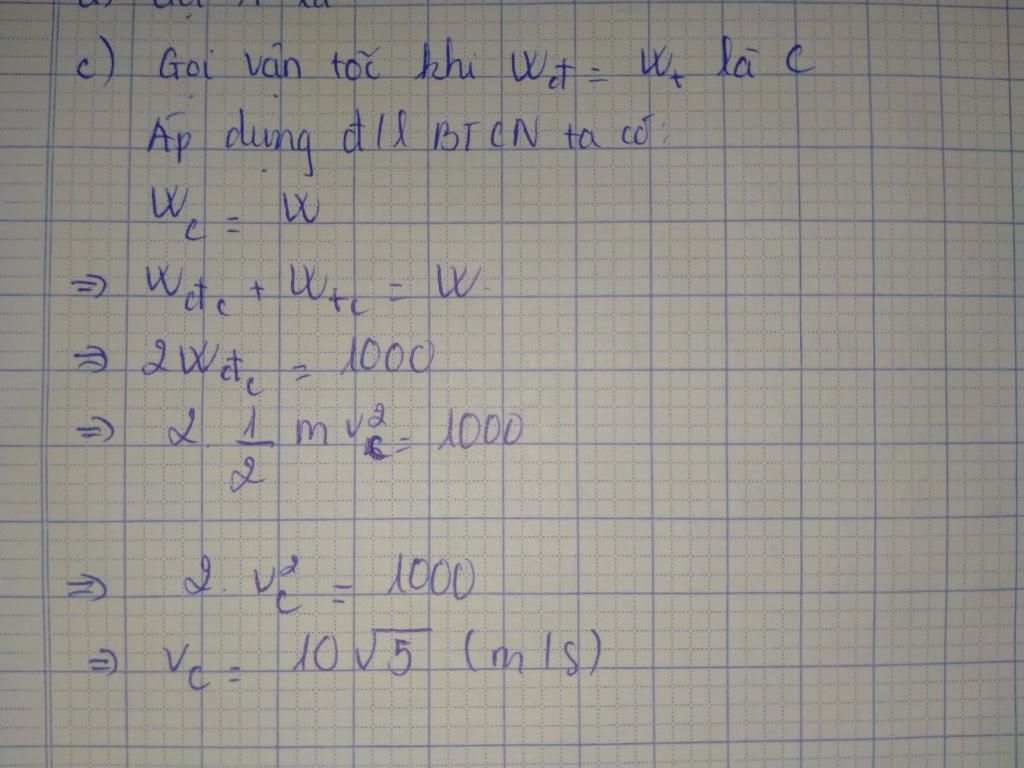 c) Gọi vận tốc khi Wđ = Wt là C
Áp dụng đ/l BTCN ta có:
Wc = W
=> Wđc + Wtc = W
=> 2Wđc = 1000
=> 2. 1/2 m vc² = 1000
=> 2. vc² = 1000
=> vc = 10√5 (m/s)